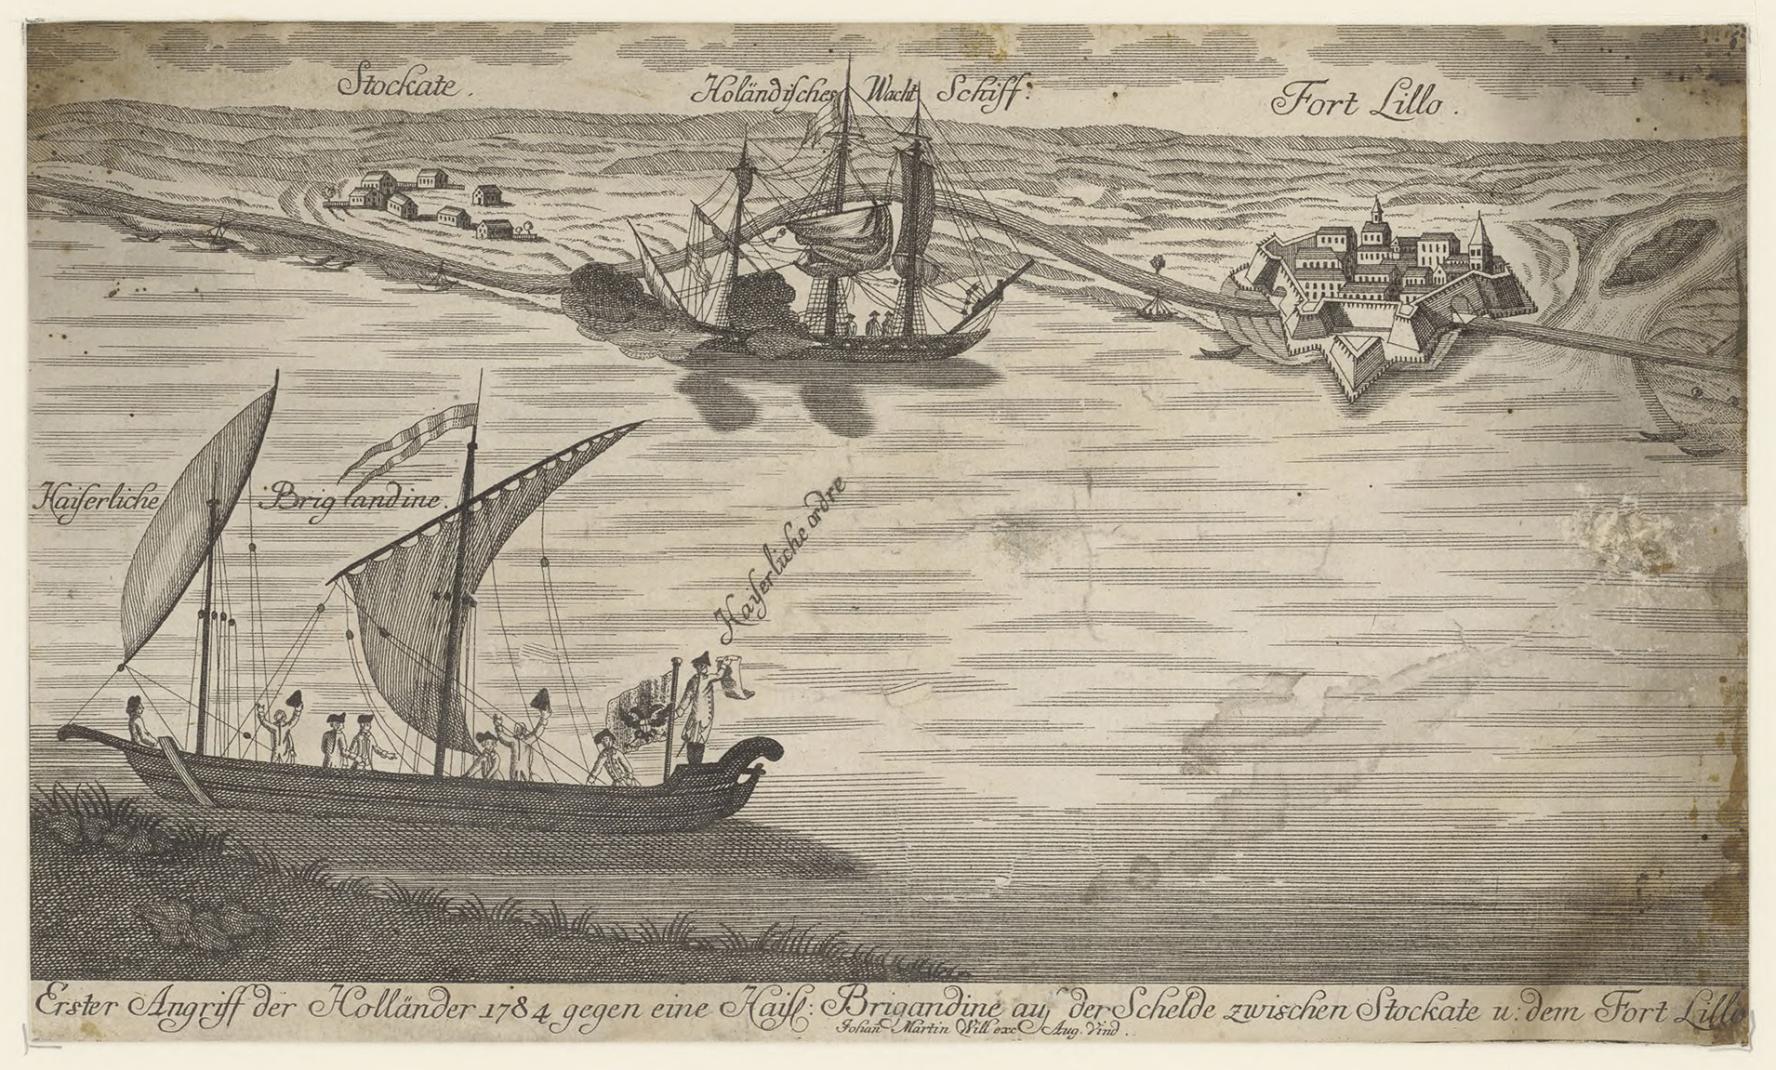 Stockate.
Holändisches Wacht Schiff:
Fort Lillo.
Kaiserliche Brigandine.
Kaiserliche ordre
Erster Angriff der Holländer 1784 gegen eine Kaisl: Brigandine auf der Schelde zwischen Stockate u: dem Fort Lillo
Johan Martin Will exc. Aug. Vind.